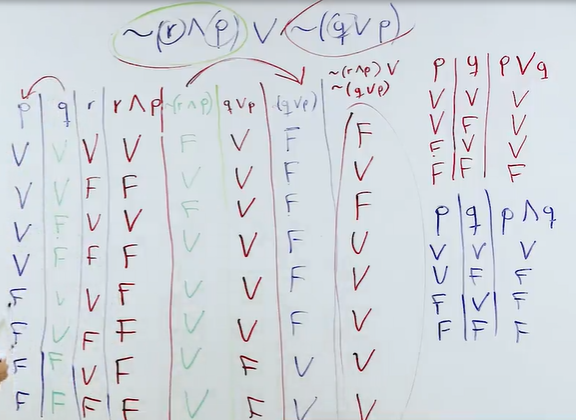 ~(r∧p) ∨ ~(q∨p)
p | q | r | r∧p | ~(r∧p) | q∨p | ~(q∨p) | ~(r∧p) ∨ ~(q∨p)
V | V | V | V | F | V | F | F
V | V | F | F | V | V | F | V
V | F | V | V | F | V | F | F
V | F | F | F | V | V | F | V
F | V | V | F | V | V | F | V
F | V | F | F | V | V | F | V
F | F | V | F | V | F | V | V
F | F | F | F | V | F | V | V
p | q | p∨q
V | V | V
V | F | V
F | V | V
F | F | F
p | q | p∧q
V | V | V
V | F | F
F | V | F
F | F | F